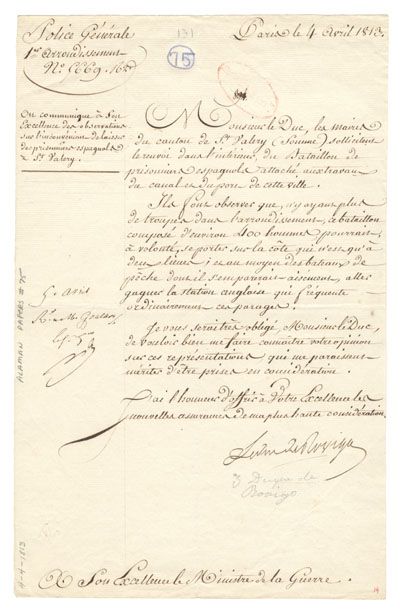 Police Générale
Paris le 4 Avril 1813.
1er arrondissement
131
75
On communique à Son
Excellence des observations
sur l'inconvénient de laisser
des prisonniers espagnols
à St Valery.
Monsieur le Duc, les maires
du canton de St Valery (Somme) sollicitent
le renvoi dans l'intérieur, du Bataillon de
prisonniers espagnols attaché aux travaux
du canal et du port de cette ville.
Ils font observer que, n'y ayant plus
de troupes dans l'arrondissement, ce bataillon
composé d'environ 400 hommes pourrait,
à volonté, se porter sur la côte qui n'est qu'à
deux lieues; et au moyen des bateaux de
pêche dont il s'emparerait aisément, aller
gagner la station anglaise qui fréquente
ordinairement ces parages.
Je vous serai très obligé, Monsieur le Duc,
de vouloir bien me faire connaître votre opinion
sur ces représentations qui me paraissent
mérites d'être prises en considération.
J'ai l'honneur d'offrir à Votre Excellence les
nouvelles assurances de ma plus haute considération.
Duque de
Rovigo
ALAMAN PAPERS # 75
4-4-1813
A Son Excellence le Ministre de la Guerre.